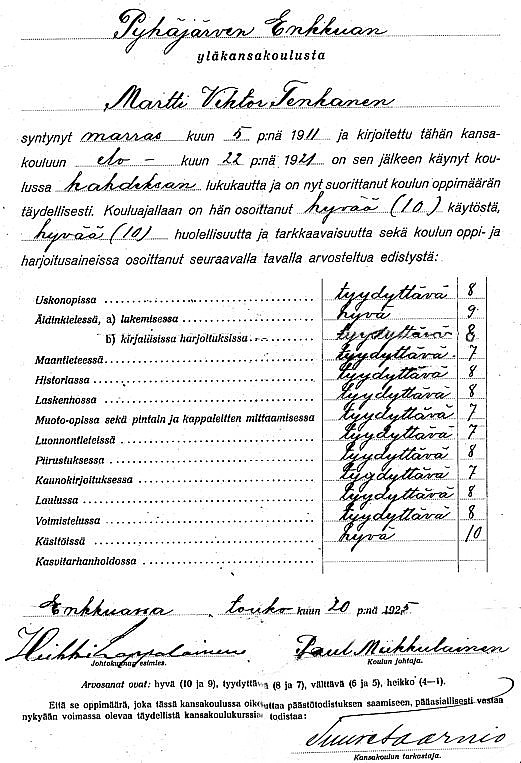 Pyhäjärven Enkkuan
yläkansakoulusta
Martti Viktor Tenkanen
syntynyt marras kuun 5 p:nä 1911 ja kirjoitettu tähän kansa-
kouluun elo- kuun 22 p:nä 1921 on sen jälkeen käynyt kou-
lussa kahdeksan lukukautta ja on nyt suorittanut koulun oppimäärän
täydellisesti. Kouluajallaan on hän osoittanut hyvää (10) käytöstä,
hyvää (10) huolellisuutta ja tarkkaavaisuutta sekä koulun oppi- ja
harjoitusaineissa osoittanut seuraavalla tavalla arvosteltua edistystä:
Uskonopissa tyydyttävä 8
Äidinkielessä, a) lukemisessa hyvä 9
b) kirjallisissa harjoituksissa tyydyttävä 8
Maantieteessä tyydyttävä 7
Historiassa tyydyttävä 8
Laskennossa tyydyttävä 8
Muoto-opissa sekä pintain ja kappaleitten mittaamisessa tyydyttävä 7
Luonnontieteissä tyydyttävä 7
Piirustuksessa tyydyttävä 8
Kaunokirjoituksessa tyydyttävä 7
Laulussa tyydyttävä 8
Voimistelussa tyydyttävä 8
Käsitöissä hyvä 10
Kasvitarhanhoidossa
Enkkuassa, touko kuun 20 p:nä 1925
Heikki Lappalainen Paul Mikkulainen
Johtokunnan esimies. Koulun johtaja.
Arvosanat ovat: hyvä (10 ja 9), tyydyttävä (8 ja 7), välttävä (6 ja 5), heikko (4—1).
Että se oppimäärä, joka tässä kansakoulussa oikeuttaa päästötodistuksen saamiseen, pääasiallisesti vastaa
nykyään voimassa olevaa täydellistä kansakoulukurssia todistaa:
Tuure Saarnio
Kansakoulun tarkastaja.